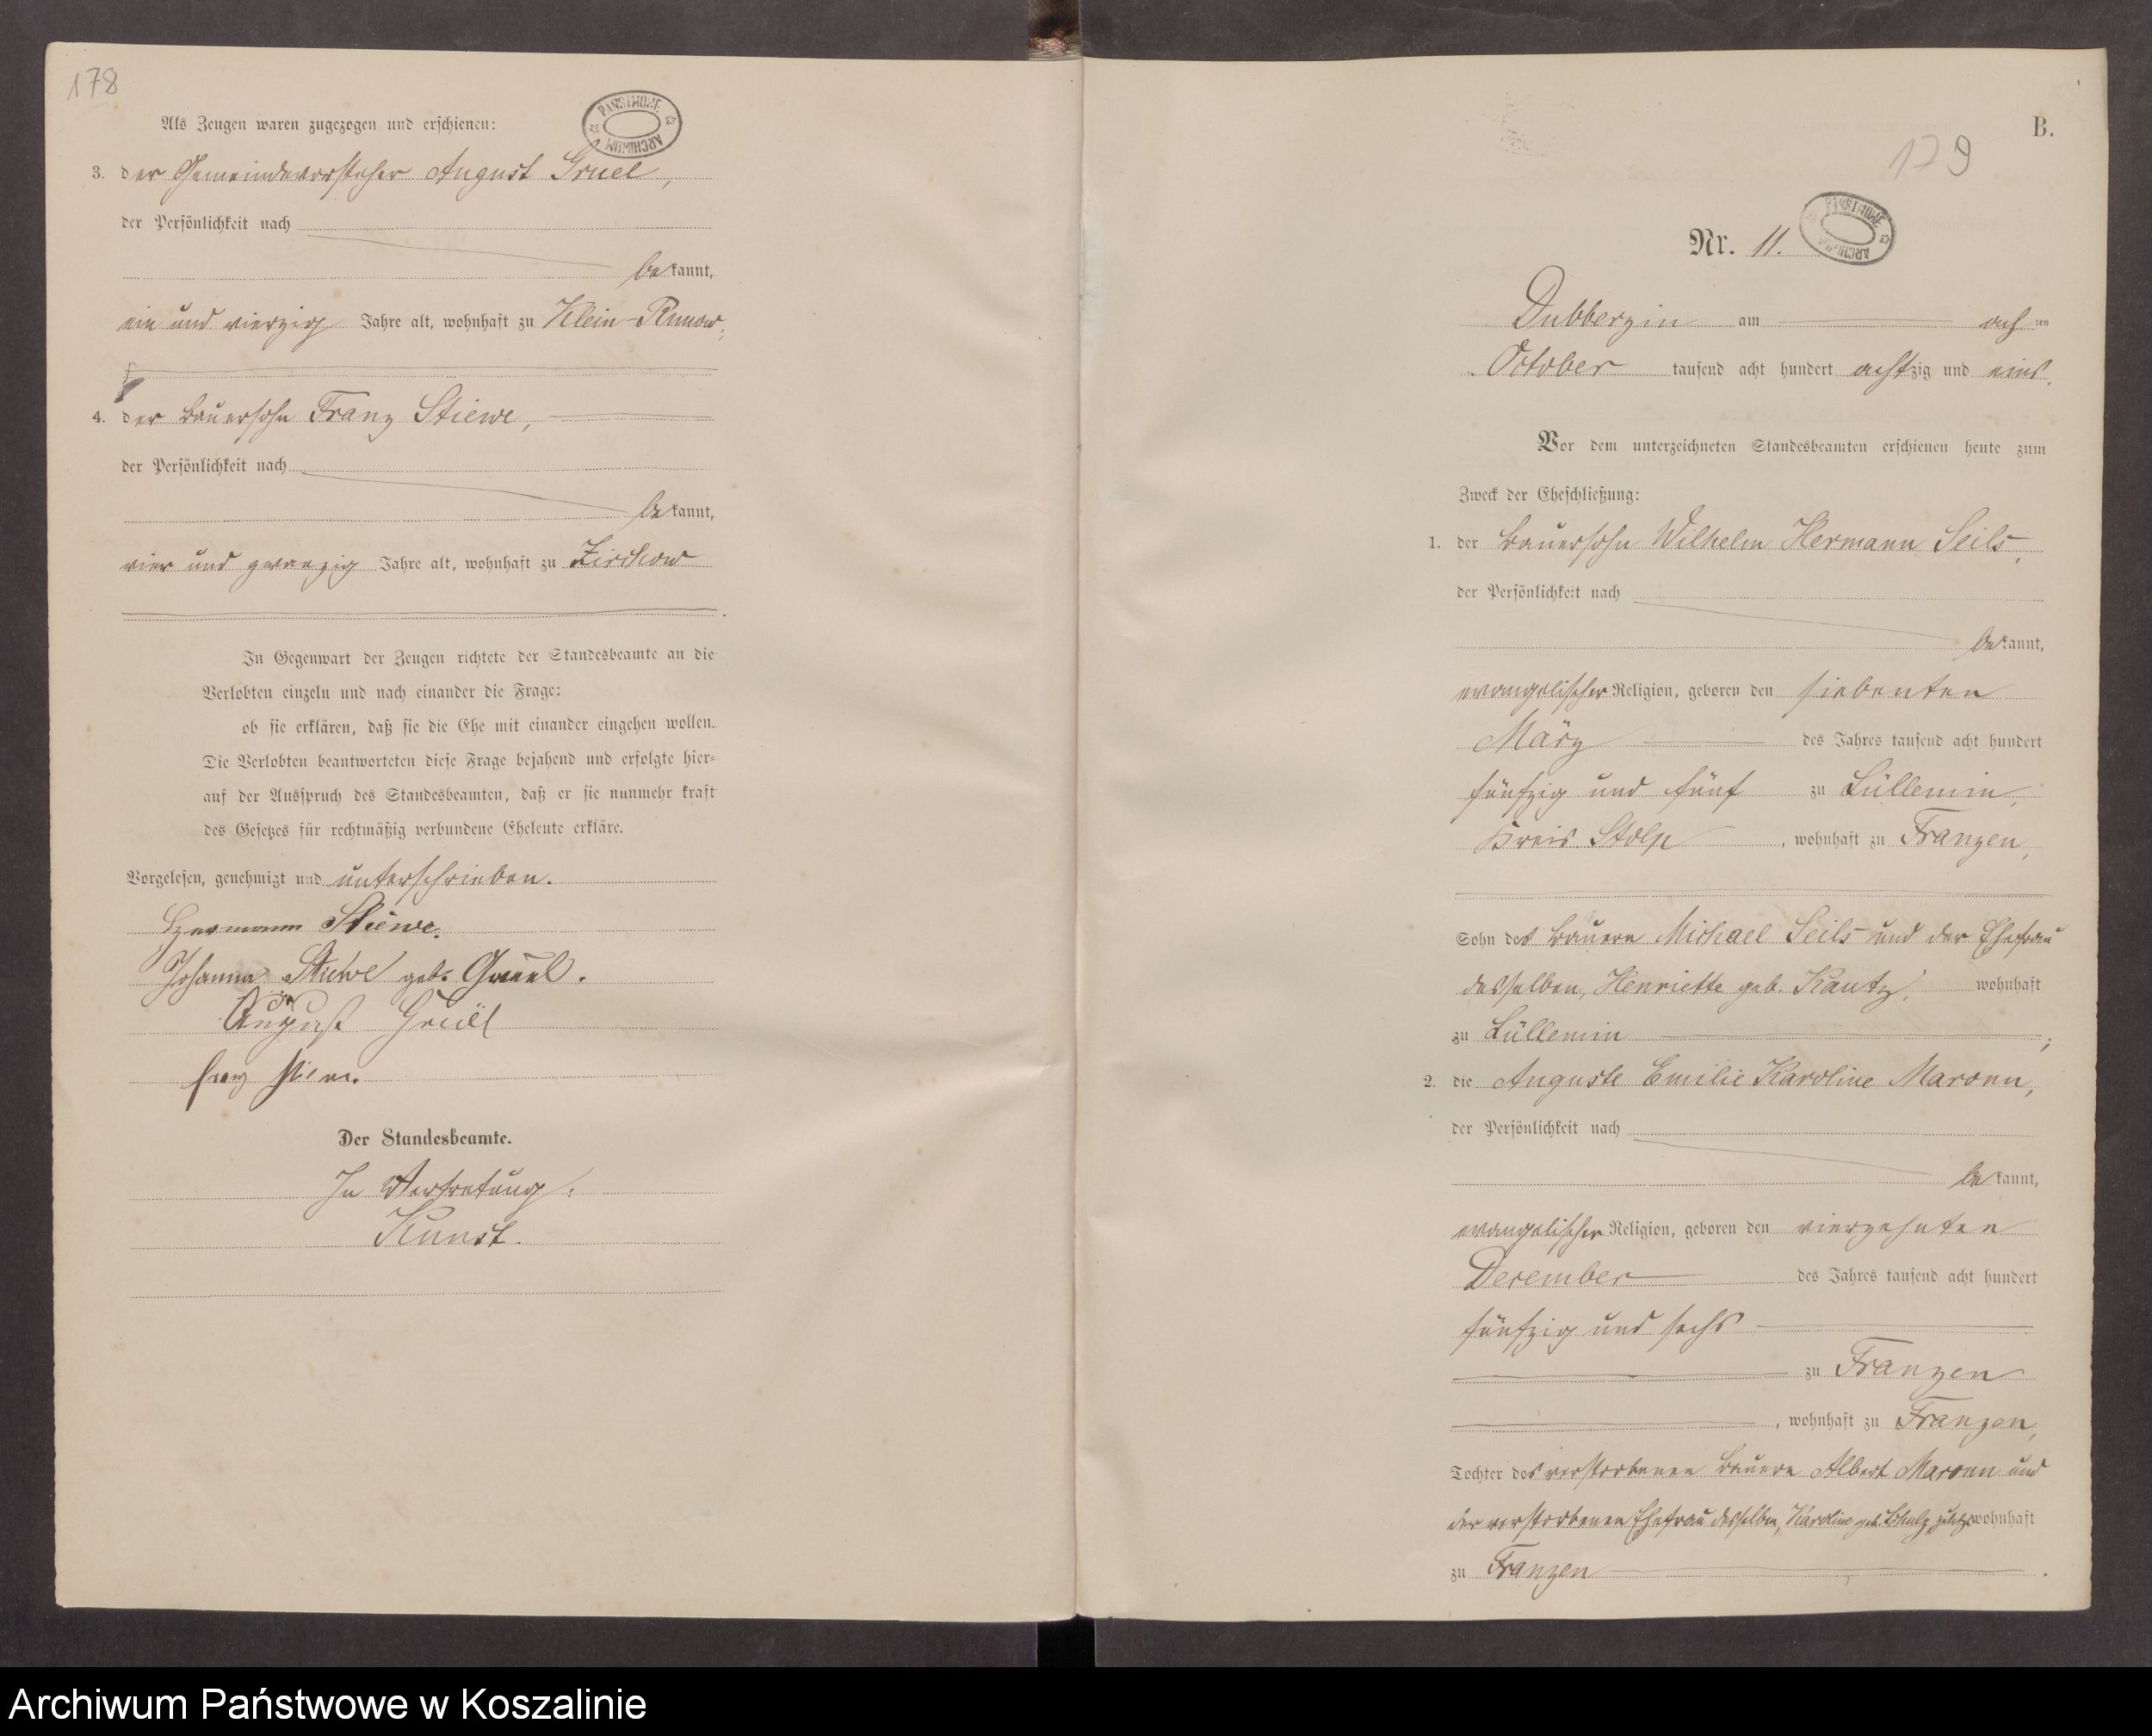 178
Als Zeugen waren zugezogen und erschienen:
PAŃSTWOWE ARCHIWUM
3. der Gemeindevorsteher August Gruel,
der Persönlichkeit nach
bekannt,
ein und vierzig Jahre alt, wohnhaft zu Klein-Runow,
4. der Bauersohn Franz Stiewe,
der Persönlichkeit nach
bekannt,
vier und zwanzig Jahre alt, wohnhaft zu Zirchow
In Gegenwart der Zeugen richtete der Standesbeamte an die
Verlobten einzeln und nach einander die Frage:
ob sie erklären, daß sie die Ehe mit einander eingehen wollen.
Die Verlobten beantworteten diese Frage bejahend und erfolgte hier-
auf der Ausspruch des Standesbeamten, daß er sie nunmehr kraft
des Gesetzes für rechtmäßig verbundene Eheleute erkläre.
Vorgelesen, genehmigt und unterschrieben.
Hermann Stiewe.
Johanna Stiewe geb. Gruel.
August Gruel
Franz Stiewe.
Der Standesbeamte.
In Vertretung:
Kunst.
B.
179
Nr. 11.
PAŃSTWOWE ARCHIWUM
Dubberzin am achten
October tausend acht hundert achtzig und eins.
Vor dem unterzeichneten Standesbeamten erschienen heute zum
Zweck der Eheschließung:
1. der Bauersohn Wilhelm Hermann Seils,
der Persönlichkeit nach
bekannt,
evangelischer Religion, geboren den siebenten
März des Jahres tausend acht hundert
fünfzig und fünf zu Lüllemin,
Kreis Stolp, wohnhaft zu Franzen,
Sohn des Bauern Michael Seils und der Ehefrau
desselben, Henriette geb. Kautz, wohnhaft
zu Lüllemin;
2. die Auguste Emilie Karoline Maronn,
der Persönlichkeit nach
bekannt,
evangelischer Religion, geboren den vierzehnten
December des Jahres tausend acht hundert
fünfzig und sechs
zu Franzen
, wohnhaft zu Franzen,
Tochter des verstorbenen Bauern Albert Maronn und
der verstorbenen Ehefrau desselben, Karoline geb. Schulz, zuletzt wohnhaft
zu Franzen.
Archiwum Państwowe w Koszalinie